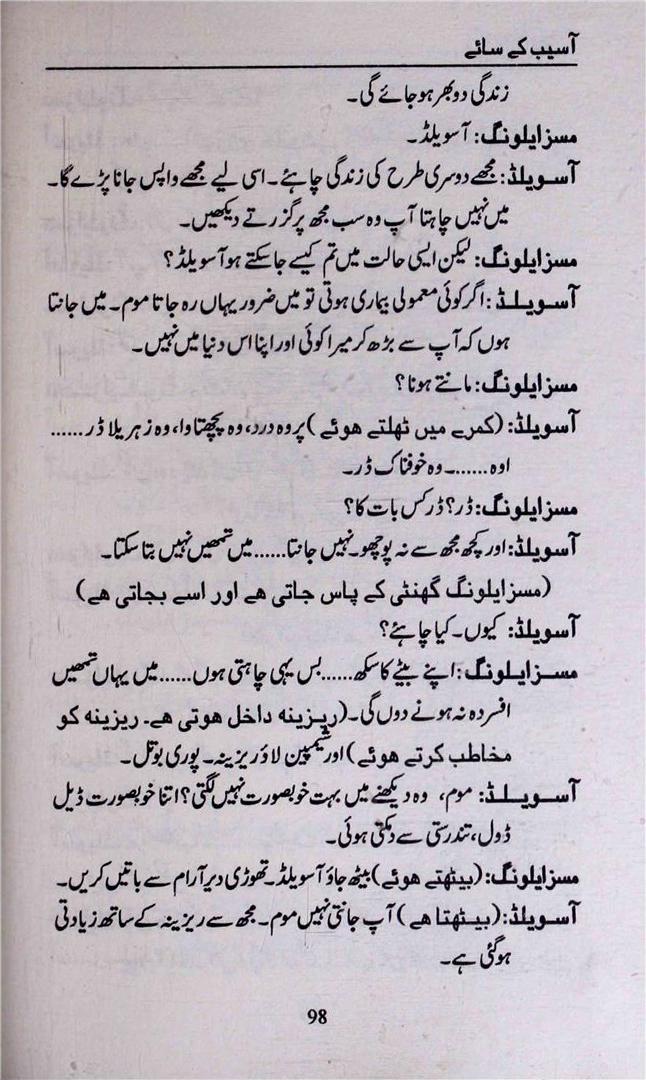 آسیب کے سائے
زندگی دوبھر ہو جائے گی۔
مسز ایلونگ: آسویلڈ۔
آسویلڈ: مجھے دوسری طرح کی زندگی چاہئے۔ اسی لیے مجھے واپس جانا پڑے گا۔
میں نہیں چاہتا آپ وہ سب مجھ پر گزرتے دیکھیں۔
مسز ایلونگ: لیکن ایسی حالت میں تم کیسے جا سکتے ہو آسویلڈ؟
آسویلڈ: اگر کوئی معمولی بیماری ہوتی تو میں ضرور یہاں رہ جاتا موم۔ میں جانتا
ہوں کہ آپ سے بڑھ کر میرا کوئی اور اپنا اس دنیا میں نہیں۔
مسز ایلونگ: مانتے ہونا؟
آسویلڈ: (کمرے میں ٹھلتے ھوئے) پر وہ درد، وہ پچھتاوا، وہ زہریلا ڈر......
اوہ......۔ وہ خوفناک ڈر۔
مسز ایلونگ: ڈر؟ ڈر کس بات کا؟
آسویلڈ: اور کچھ مجھ سے نہ پوچھو۔ نہیں جانتا...... میں تمھیں نہیں بتا سکتا۔
(مسز ایلونگ گھنٹی کے پاس جاتی ھے اور اسے بجاتی ھے)
آسویلڈ: کیوں۔ کیا چاہئے؟
مسز ایلونگ: اپنے بیٹے کا سکھ...... بس یہی چاہتی ہوں...... میں یہاں تمھیں
افسردہ نہ ہونے دوں گی۔ (ریزینہ داخل ھوتی ھے۔ ریزینہ کو
مخاطب کرتے ھوئے) اور شیمپین لاؤ ریزینہ۔ پوری بوتل۔
آسویلڈ: موم، وہ دیکھنے میں بہت خوبصورت نہیں لگتی؟ اتنا خوبصورت ڈیل
ڈول، تندرستی سے دمکتی ہوئی۔
مسز ایلونگ: (بیٹھتے ھوئے) بیٹھ جاؤ آسویلڈ۔ تھوڑی دیر آرام سے باتیں کریں۔
آسویلڈ: (بیٹھتا ھے) آپ جانتی نہیں موم۔ مجھ سے ریزینہ کے ساتھ زیادتی
ہو گئی ہے۔
98